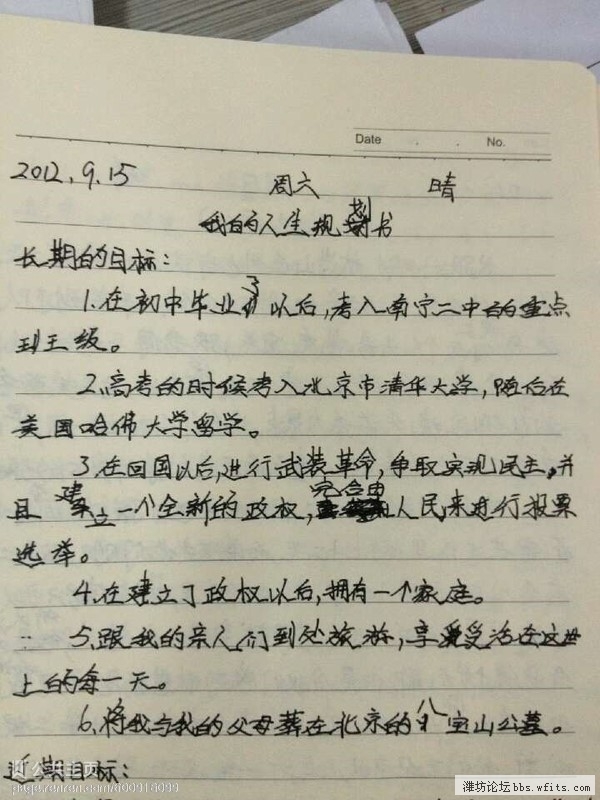 Date . . No.
2012.9.15 周六 晴
我的人生规划书
长期的目标：
1.在初中毕业了以后,考入南宁二中的重点
班级。
2.高考的时候考入北京市清华大学,随后在
美国哈佛大学留学。
3.在回国以后,进行武装革命,争取实现民主,并
且建立一个全新的政权,完全由人民来进行投票
选举。
4.在建立了政权以后,拥有一个家庭。
5.跟我的亲人们到处旅游,享受活在这世
上的每一天。
6.将我与我的父母葬在北京的八宝山公墓。
近期目标：
人人公共主页
page.renren.com/600918099
潍坊论坛 bbs.wfits.com